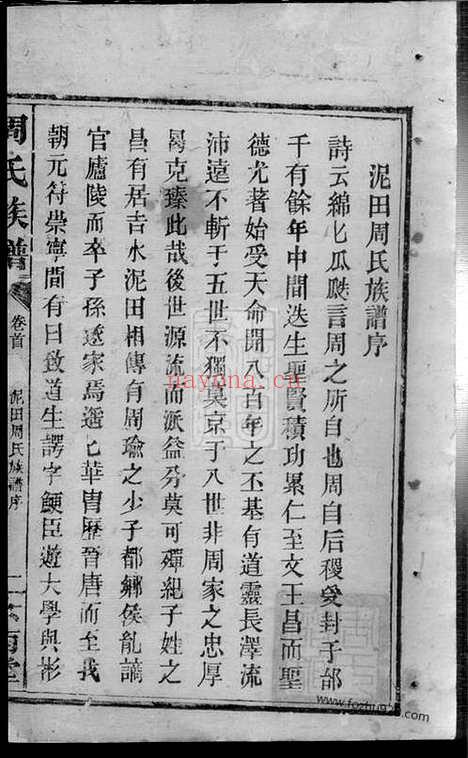 泥田周氏族譜序
詩云綿匕瓜瓞言周之所自也周自后稷受封于邰
千有餘年中間迭生聖賢積功累仁至文王昌而聖
德光著始受天命開八百年之丕基有道靈長澤流
沛遠不斬于五世不獨莫京于八世非周家之忠厚
曷克臻此哉後世源流而派益分莫可殫紀子姓之
昌有居吉水泥田相傳有周瑜之少子都鄉侯胤謫
官廬陵而卒子孫遂家焉遥匕華胄歷晉唐而至我
朝元符崇寧間有曰敘道生諤字鯁臣遊大學與彬
周氏族譜
卷首
泥田周氏族譜序
二
堂
nayona.cn
www.fozhupu.com